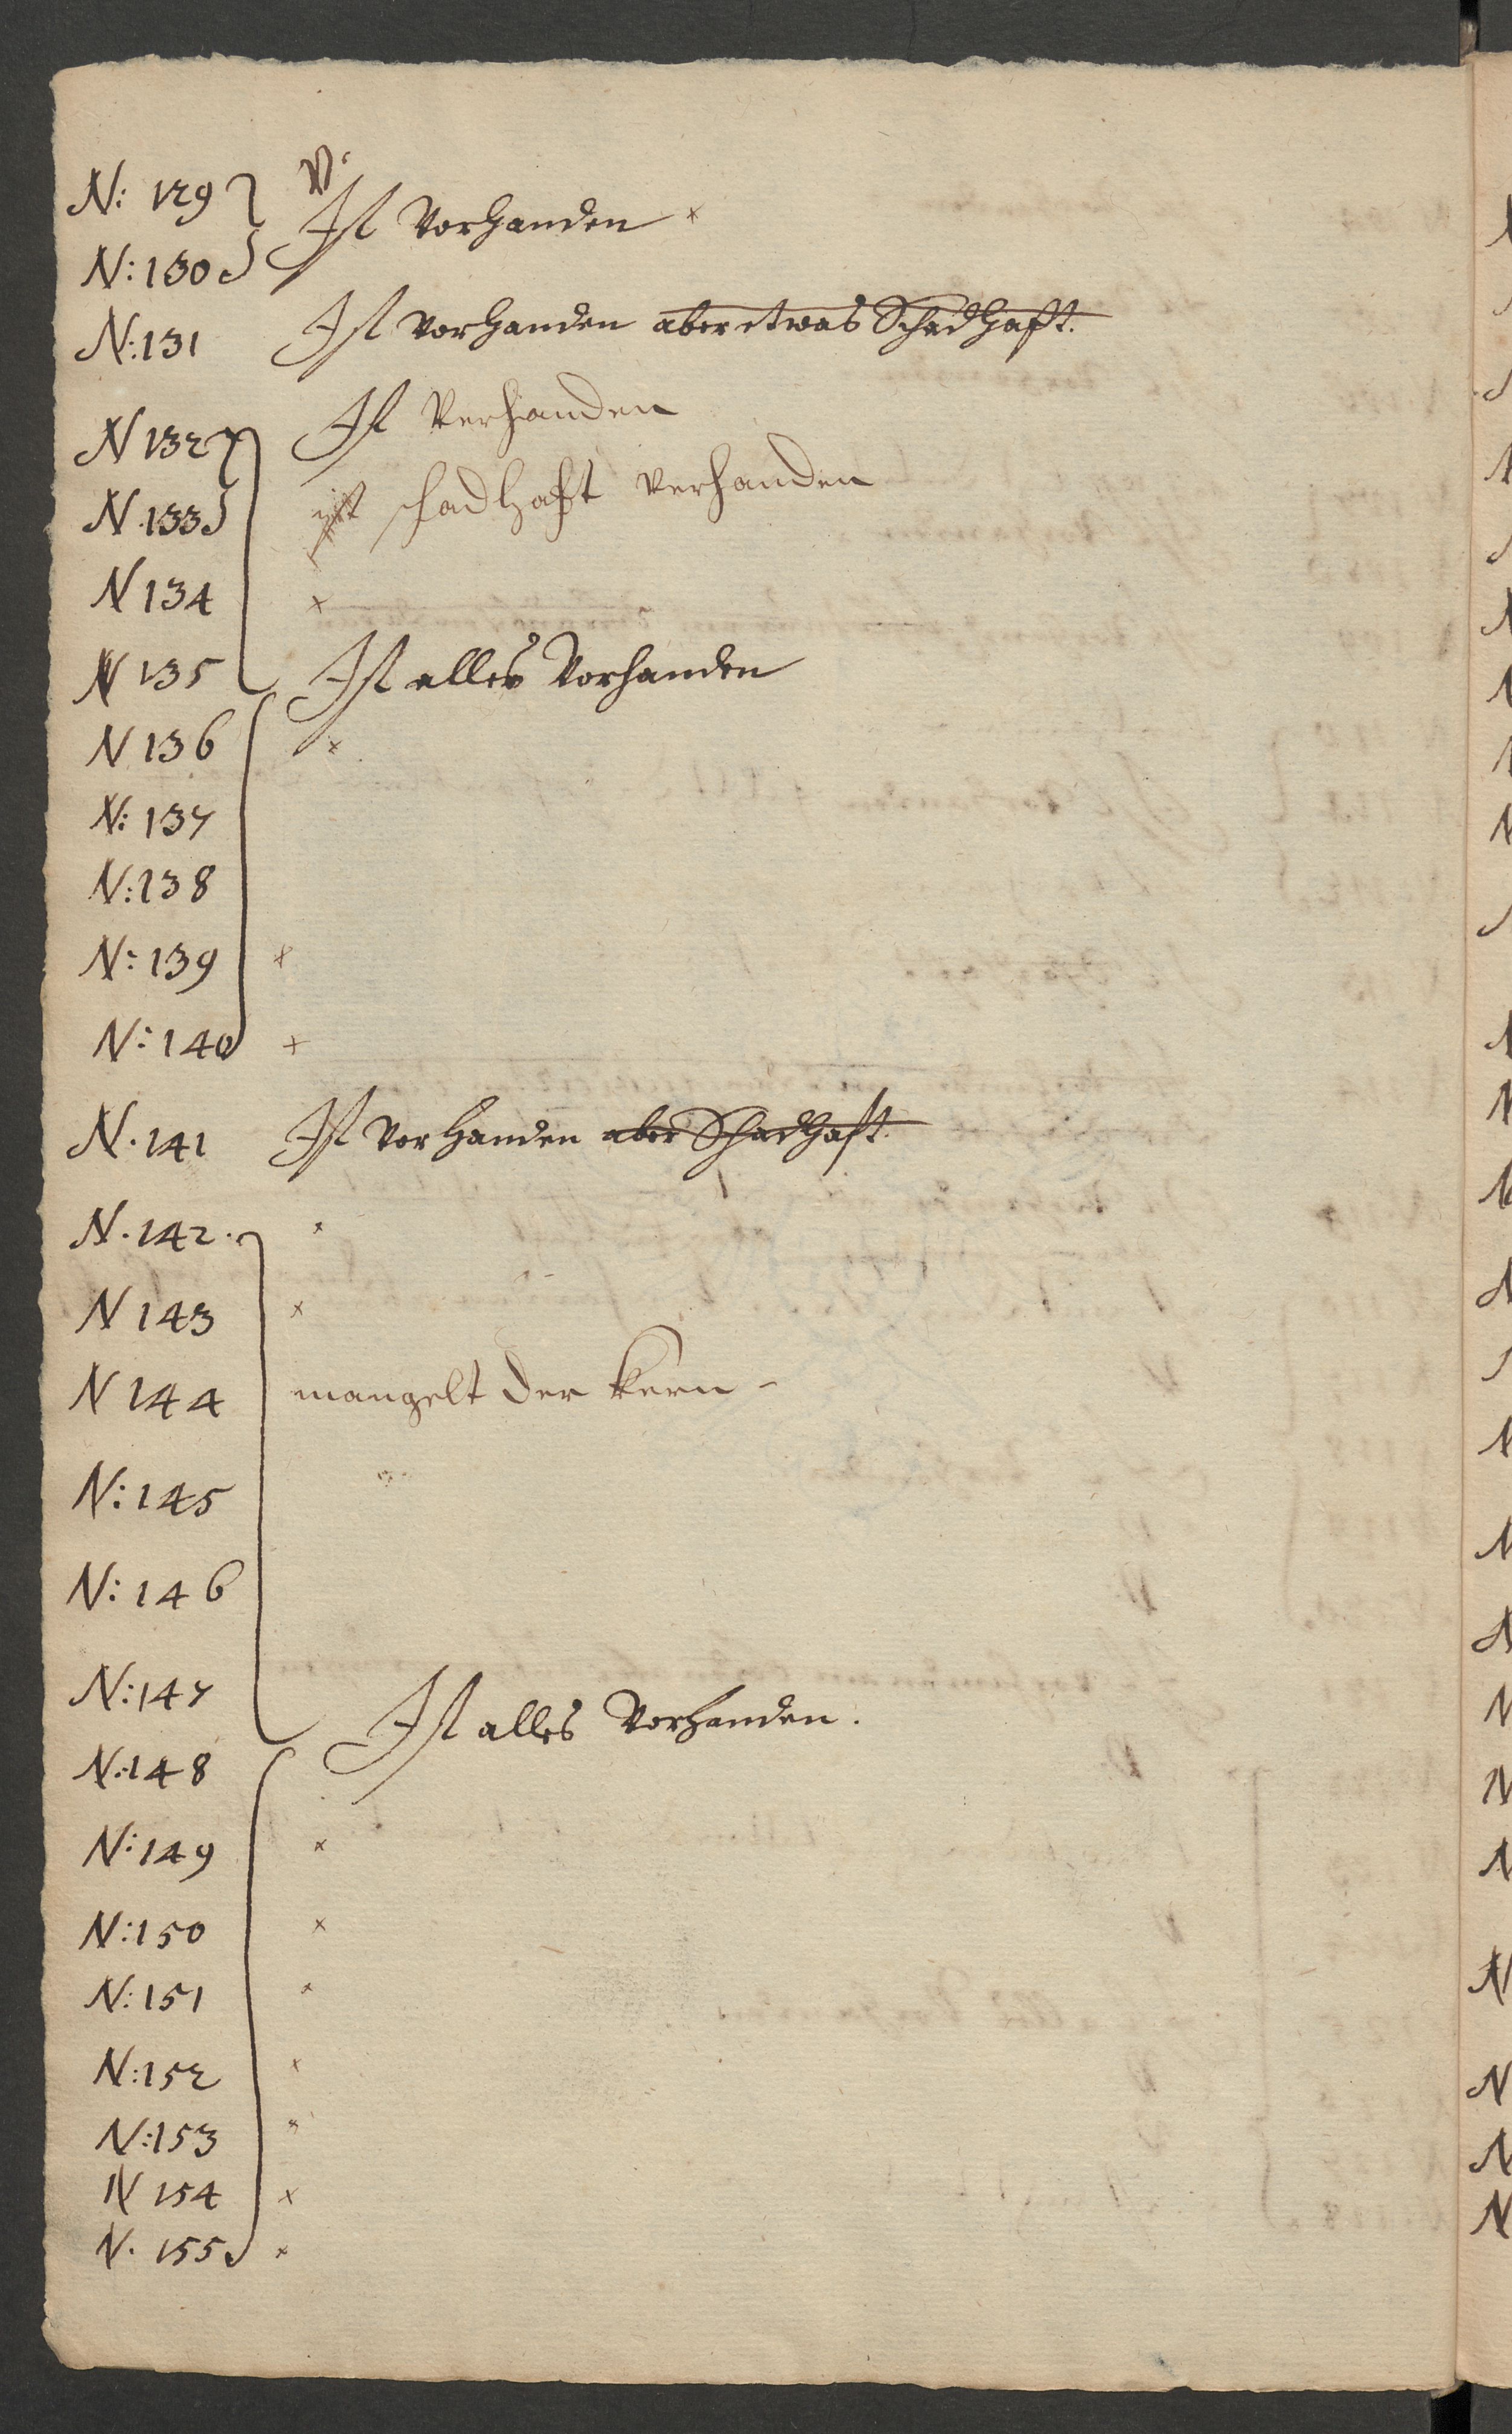 N: 129 V.
Ist Vorhanden x
N: 130
N: 131 Ist Vorhanden aber etwas Schadhaft.
N 132 Ist Verhanden
N. 133 ist schadhaft verhanden
N 134 x
N 135 Ist alles Vorhanden
N 136 x
N: 137
N: 138
N: 139 x
N: 140 x
N. 141 Ist Vorhanden aber Schadhaft.
N. 142. x
N 143 x
N 144 mangelt der kern -
N: 145
N: 146
N: 147 Ist alles Vorhanden.
N: 148
N: 149 x
N: 150 x
N: 151 x
N: 152 x
N: 153 x
N 154 x
N. 155 x